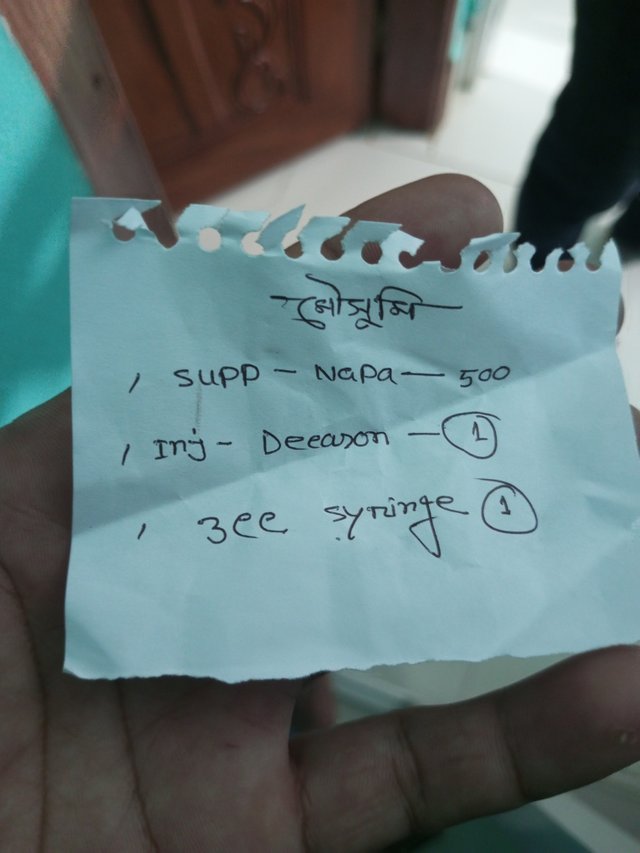 মৌসুমি
, Supp - Napa — 500
, Inj - Deeason — 1
, 3cc syringe 1